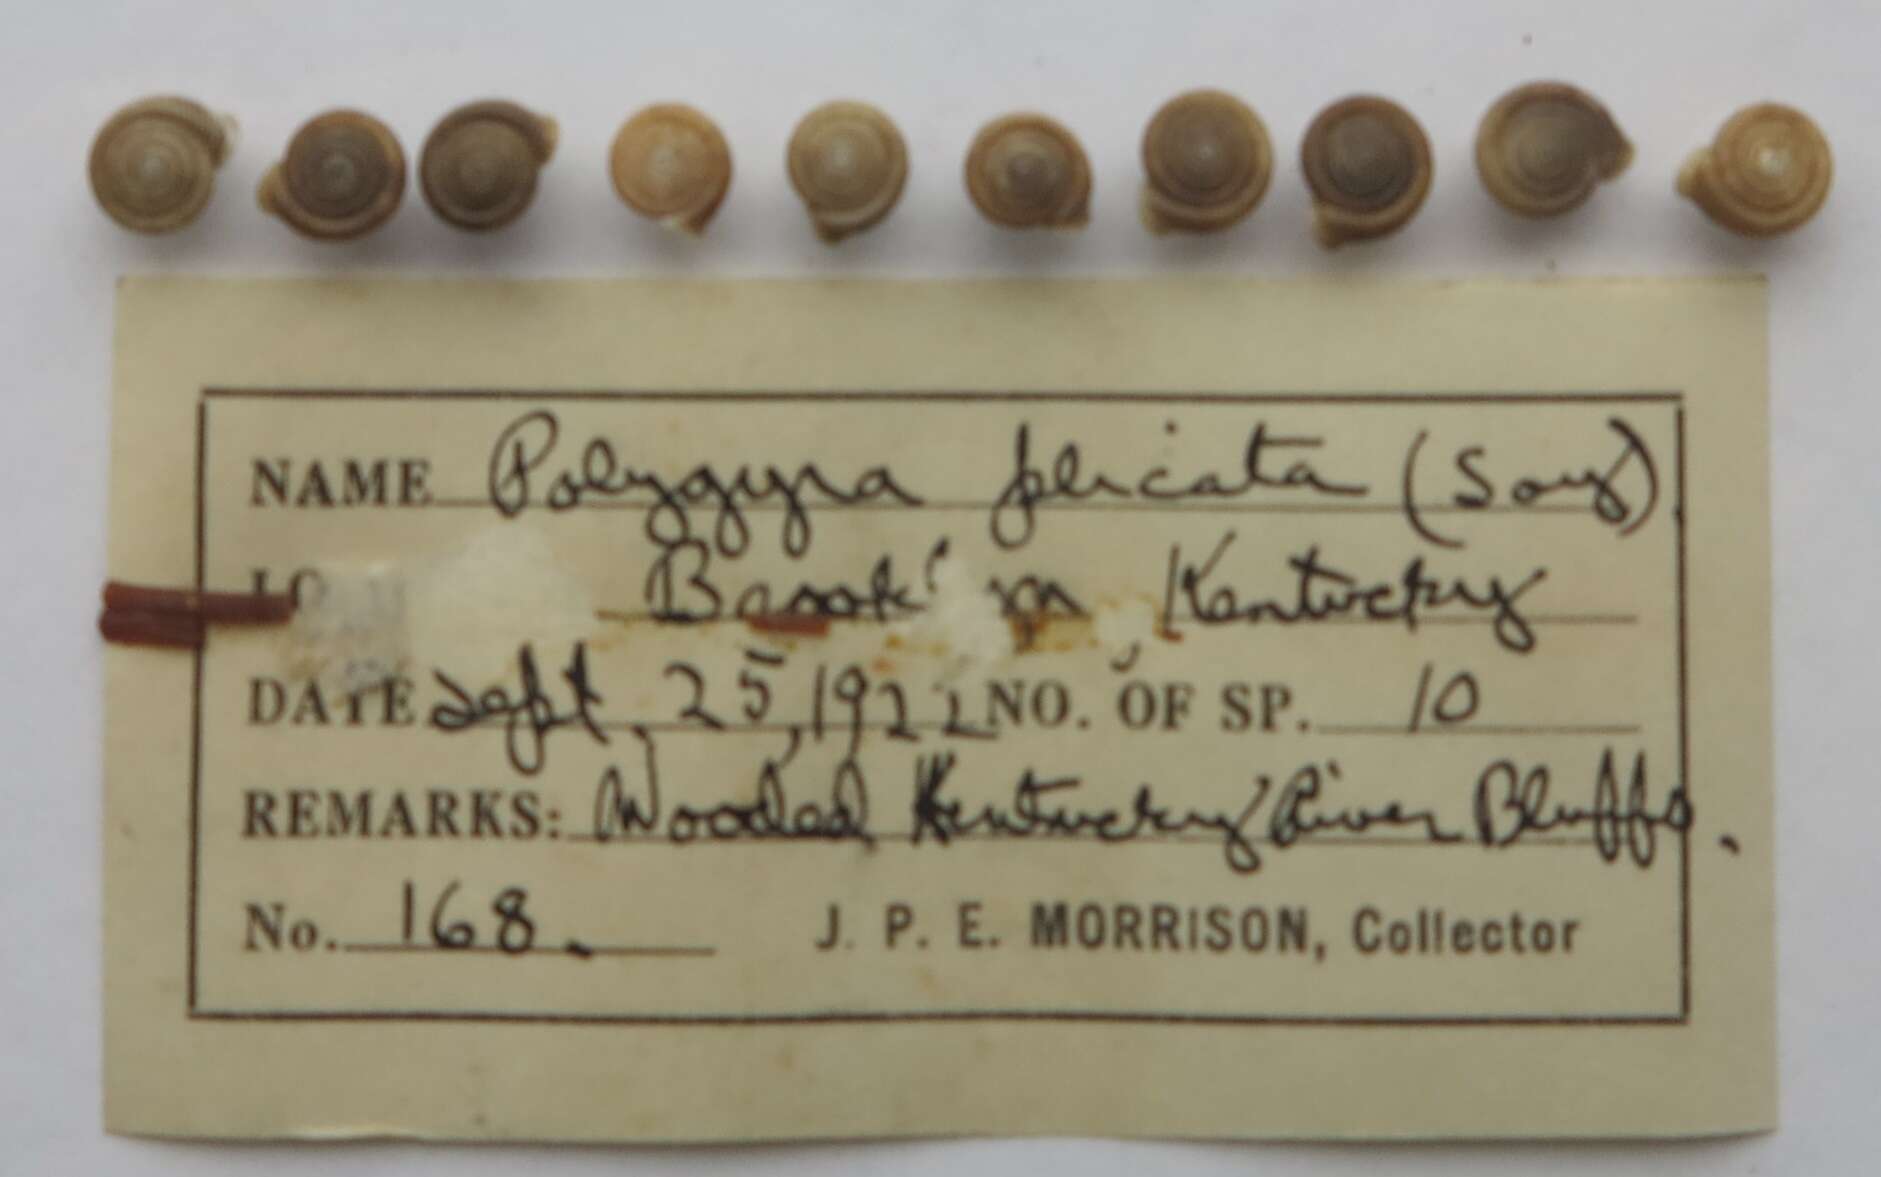 NAME Polygyra plicata (Say)
Kentucky
DATE Sept. 25, 1922 NO. OF SP. 10
REMARKS: Wooded Kentucky River Bluffs.
No. 168. J. P. E. MORRISON, Collector